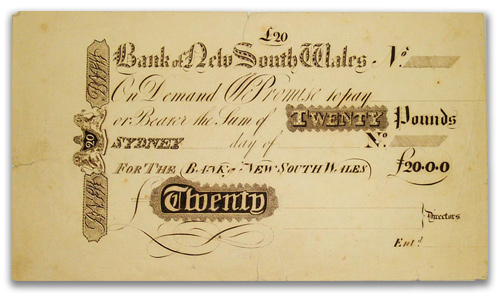 £20
Bank of New South Wales Nº
On Demand We Promise to pay
or Bearer the Sum of TWENTY Pounds
SYDNEY day of Nº
FOR THE BANK OF NEW SOUTH WALES £20.0.0
£ Twenty
Directors
Entd
20